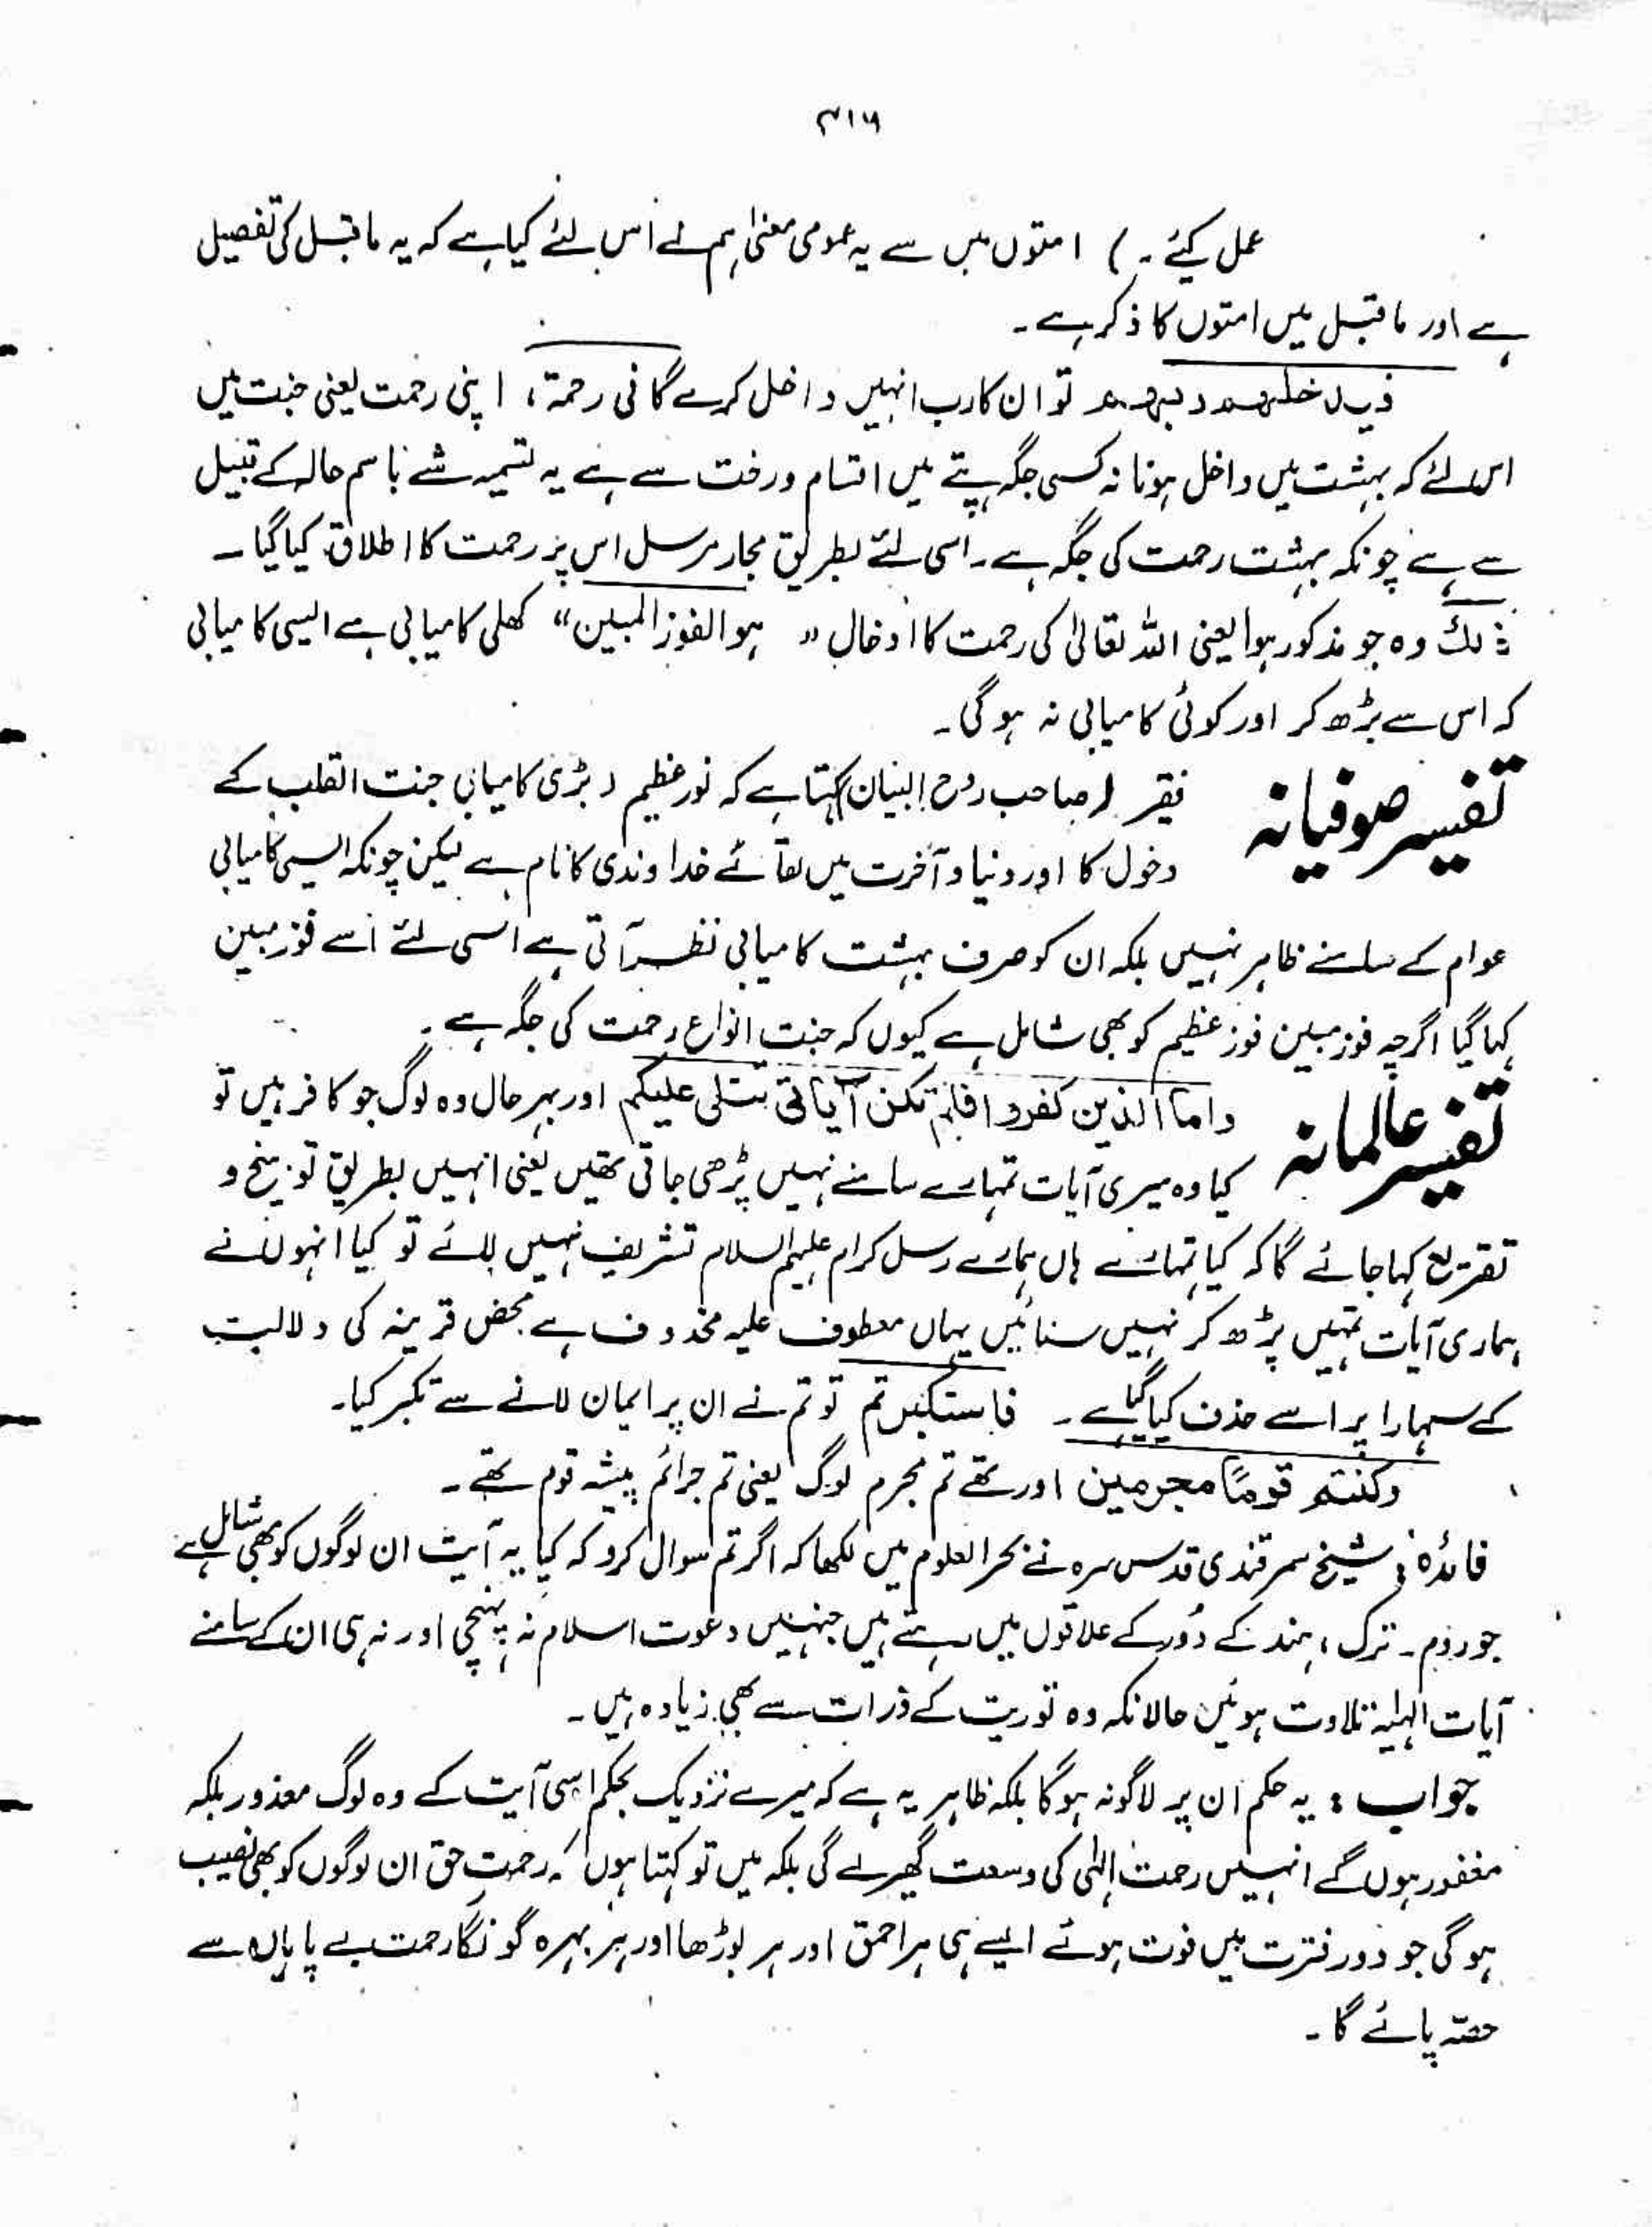 ۳۱۶
عمل کیئے ۔ ) امتوں میں سے یہ عمومی معنیٰ ہم نے اس لئے کیا ہے کہ یہ ماقبل کی تفصیل
ہے اور ماقبل میں امتوں کا ذکر ہے ۔
فیدخلھم ربھم تو ان کا رب انہیں داخل کرے گا فی رحمۃ ، اپنی رحمت یعنی جنت میں
اس لئے کہ بہشت میں داخل ہونا نہ کسی جگہ پتے میں اقسام ورخت سے ہے یہ تسمیہ شے باسم حالہ کے قبیل
سے ہے چونکہ بہشت رحمت کی جگہ ہے ۔ اسی لئے بطریق مجاز مرسل اس پر رحمت کا اطلاق کیا گیا ۔
ذٰلک وہ جو مذکور ہوا یعنی اللہ تعالیٰ کی رحمت کا ادخال " ہوالفوز المبین " کھلی کامیابی ہے ایسی کامیابی
کہ اس سے بڑھ کر اور کوئی کامیابی نہ ہوگی ۔
تفسیر صوفیانہ فقیر (صاحب روح البیان) کہتا ہے کہ فوز عظیم ( بڑی کامیابی جنت القلب کے
دخول کا اور دنیا و آخرت میں لقائے خداوندی کا نام ہے لیکن چونکہ ایسی کامیابی
عوام کے سامنے ظاہر نہیں بلکہ ان کو صرف بہشت کامیابی نظر آتی ہے اسی لئے اُسے فوز مبین
کہا گیا اگرچہ فوز مبین فوز عظیم کو بھی شامل ہے کیوں کہ جنت انواع رحمت کی جگہ ہے ۔
تفسیر عالمانہ واما الذین کفروا فلم تکن آیاتی تتلی علیکم اور بہرحال وہ لوگ جو کافر ہیں تو
کیا وہ میری آیات تمہارے سامنے نہیں پڑھی جاتی تھیں یعنی انہیں بطریق توبیخ و
تقریع کہا جائے گا کہ کیا تمہارے ہاں ہمارے رسل کرام علیہم السلام تشریف نہیں لائے تو کیا انہوں نے
ہماری آیات تمہیں پڑھ کر نہیں سنائیں یہاں معطوف علیہ محذوف ہے محض قرینہ کی دلالت
کے سہارا پر اسے حذف کیا گیا ہے ۔ فاستکبرتم تو تم نے ان پر ایمان لانے سے تکبر کیا ۔
وکنتم قومًا مجرمین اور تھے تم مجرم لوگ یعنی تم جرائم پیشہ قوم تھے ۔
فائدہ : شیخ سمرقندی قدس سرہ نے بحر العلوم میں لکھا کہ اگر تم سوال کرو کہ کیا یہ آیت ان لوگوں کو بھی شامل ہے
جو روم ۔ ترک ، ہند کے دُور کے علاقوں میں رہتے ہیں جنہیں دعوت اسلام نہ پہنچی اور نہ ہی ان کے سامنے
آیات الٰہیہ تلاوت ہوئیں حالانکہ وہ توریت کے ذرات سے بھی زیادہ ہیں ۔
جواب : یہ حکم ان پر لاگو نہ ہوگا بلکہ ظاہر یہ ہے کہ میرے نزدیک بحکم اسی آیت کے وہ لوگ معذور بلکہ
مغفور ہوں گے انہیں رحمت الٰہی کی وسعت گھیر لے گی بلکہ میں تو کہتا ہوں کہ رحمتِ حق ان لوگوں کو بھی نصیب
ہوگی جو دور فترت میں فوت ہوئے ایسے ہی ہر احمق اور ہر بوڑھا اور ہر بہرہ گونگا رحمت بے پایاں سے
حصّہ پائے گا ۔